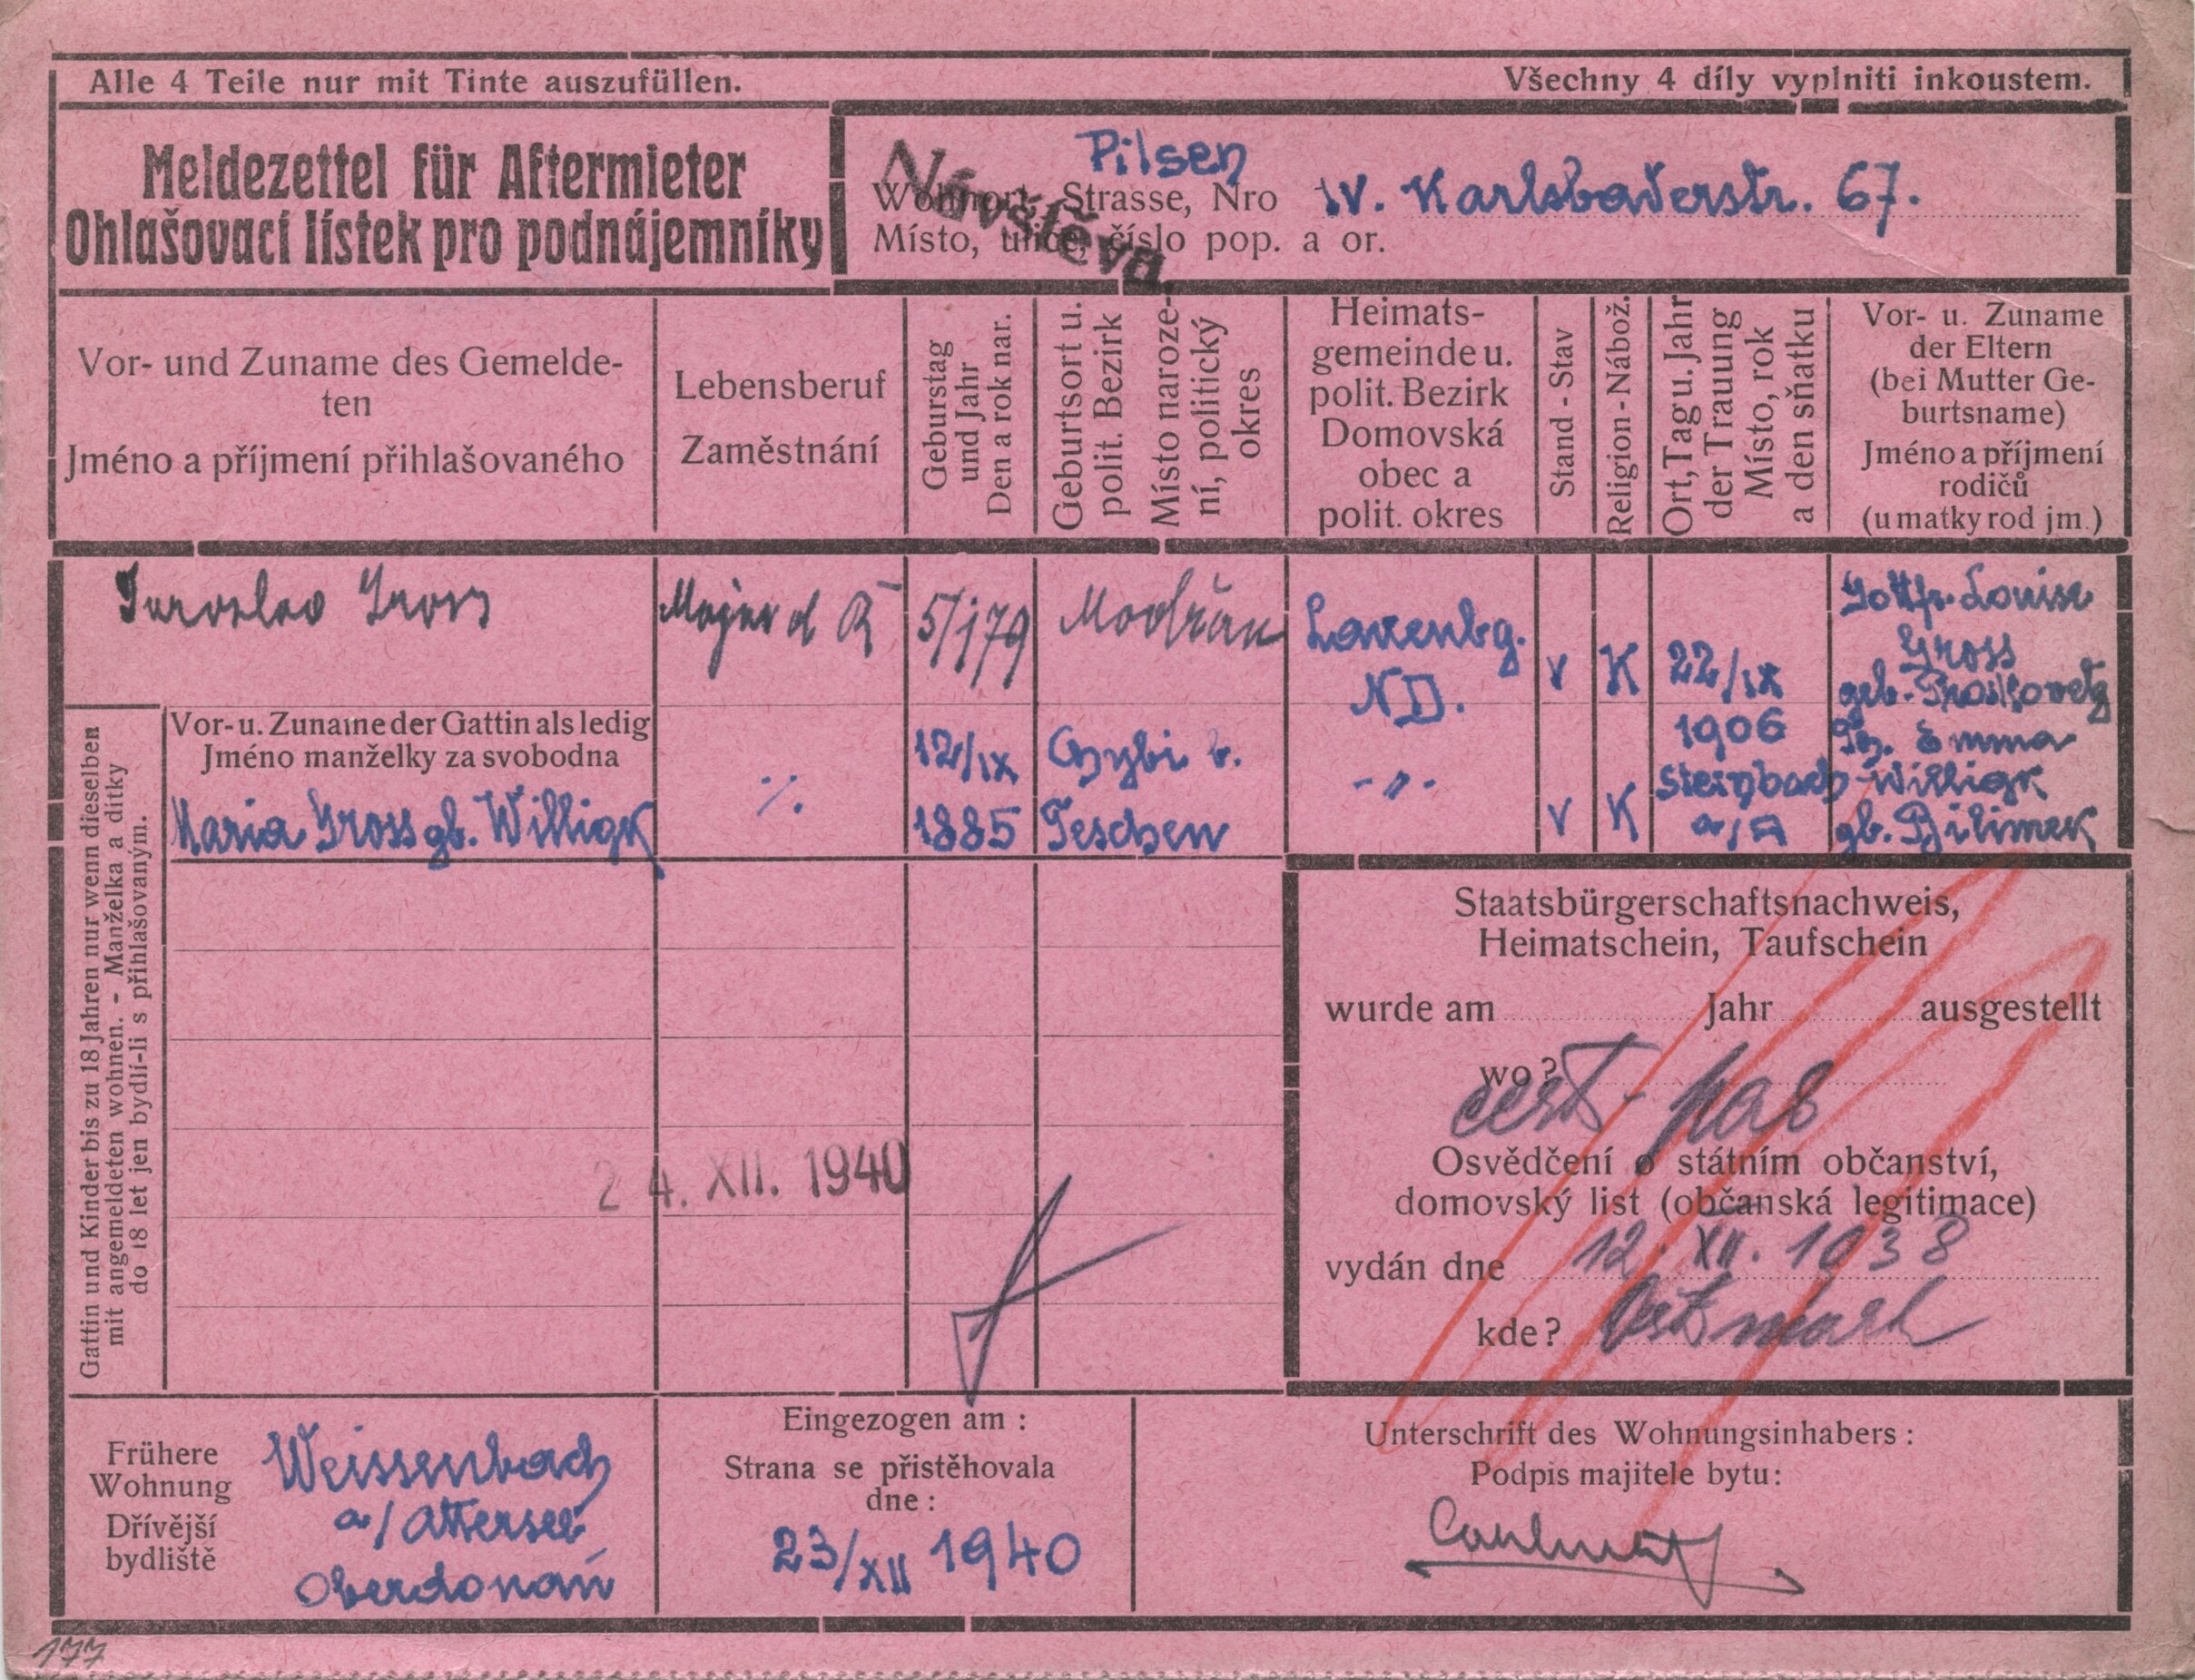 Alle 4 Teile nur mit Tinte auszufüllen.
Všechny 4 díly vyplniti inkoustem.
Meldezettel für Aftermieter
Ohlašovací lístek pro podnájemníky
Návštěva
Pilsen
Wohnort, Strasse, Nro IV. Karlsbaderstr. 67.
Místo, ulice, číslo pop. a or.
Vor- und Zuname des Gemelde-
ten
Jméno a příjmení přihlašovaného
Lebensberuf
Zaměstnání
Geburstag
und Jahr
Den a rok nar.
Geburtsort u.
polit. Bezirk
Místo naroze-
ní, politický
okres
Heimats-
gemeinde u.
polit. Bezirk
Domovská
obec a
polit. okres
Stand - Stav
Religion - Nábož.
Ort, Tag u. Jahr
der Trauung
Místo, rok
a den sňatku
Vor- u. Zuname
der Eltern
(bei Mutter Ge-
burtsname)
Jméno a příjmení
rodičů
(u matky rod jm.)
Jaroslav Gross
Major d R
5/1 79
Modřan
Laxenbg.
ND.
v
K
22/IX
1906
Steinbach
a/A
Gottfr. Louise
Gross
geb.
Emma
Willigk
gb. Bilimek
Gattin und Kinder bis zu 18 Jahren nur wenn dieselben
mit angemeldeten wohnen. - Manželka a dítky
do 18 let jen bydlí-li s přihlašovaným.
Vor- u. Zuname der Gattin als ledig
Jméno manželky za svobodna
Maria Gross gb. Willigk
·/.
12/IX
1885
b.
Teschen
-"-
v
K
24. XII. 1940
Staatsbürgerschaftsnachweis,
Heimatschein, Taufschein
wurde am Jahr ausgestellt
wo?
cest. pas
Osvědčení o státním občanství,
domovský list (občanská legitimace)
vydán dne 12. XII. 1938
kde? Ostmark
Frühere
Wohnung
Dřívější
bydliště
Weissenbach
a/Attersee
Oberdonau
Eingezogen am :
Strana se přistěhovala
dne :
23/XII 1940
Unterschrift des Wohnungsinhabers :
Podpis majitele bytu :
177